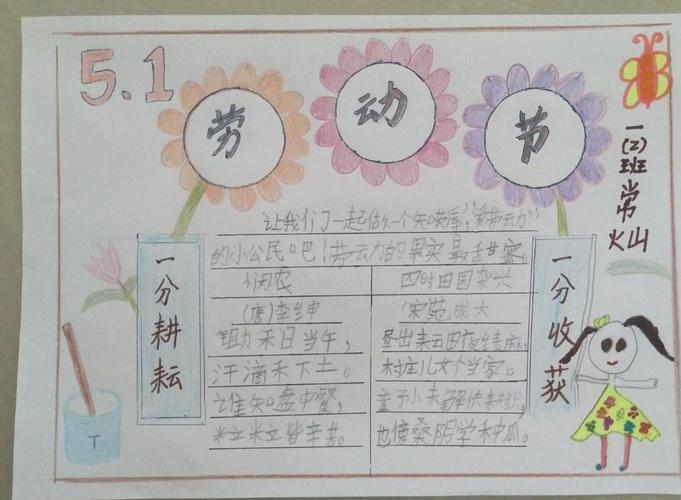 5.1
劳 动 节
一(2)班常灿
让我们一起做一个知荣辱,"爱劳动"
的小公民吧!劳动的果实最甜蜜。
悯农
(唐)李绅
锄禾日当午,
汗滴禾下土。
谁知盘中餐,
粒粒皆辛苦。
四时田园杂兴
宋范成大
昼出耘田夜绩麻,
村庄儿女个当家。
童孙未解供耕织,
也傍桑阴学种瓜。
一分耕耘
一分收获
T